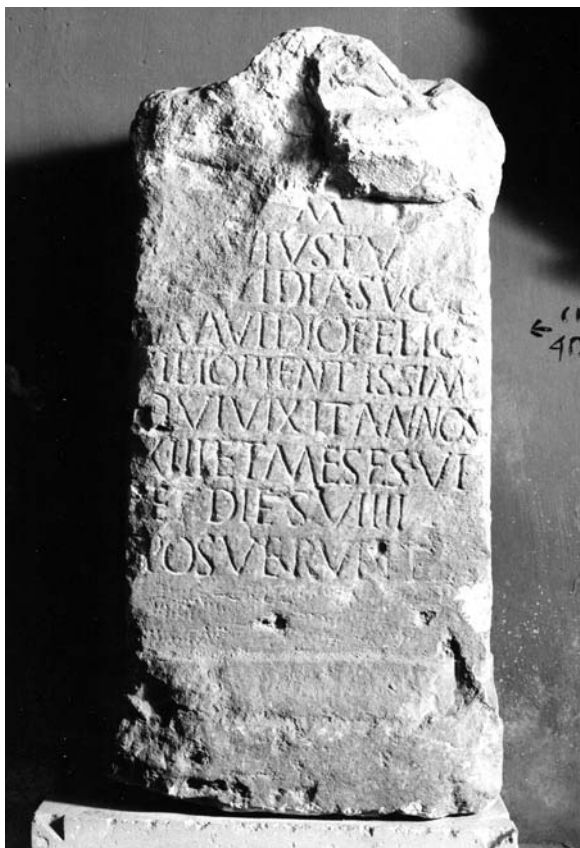 M
IUSTU
IDIASUC
AVIDIOFELIC
FILIOPIENTISSIM
QVIVIXITANNOS
XIIIETMESESVI
ETDIESVIIII
POSVERVNT